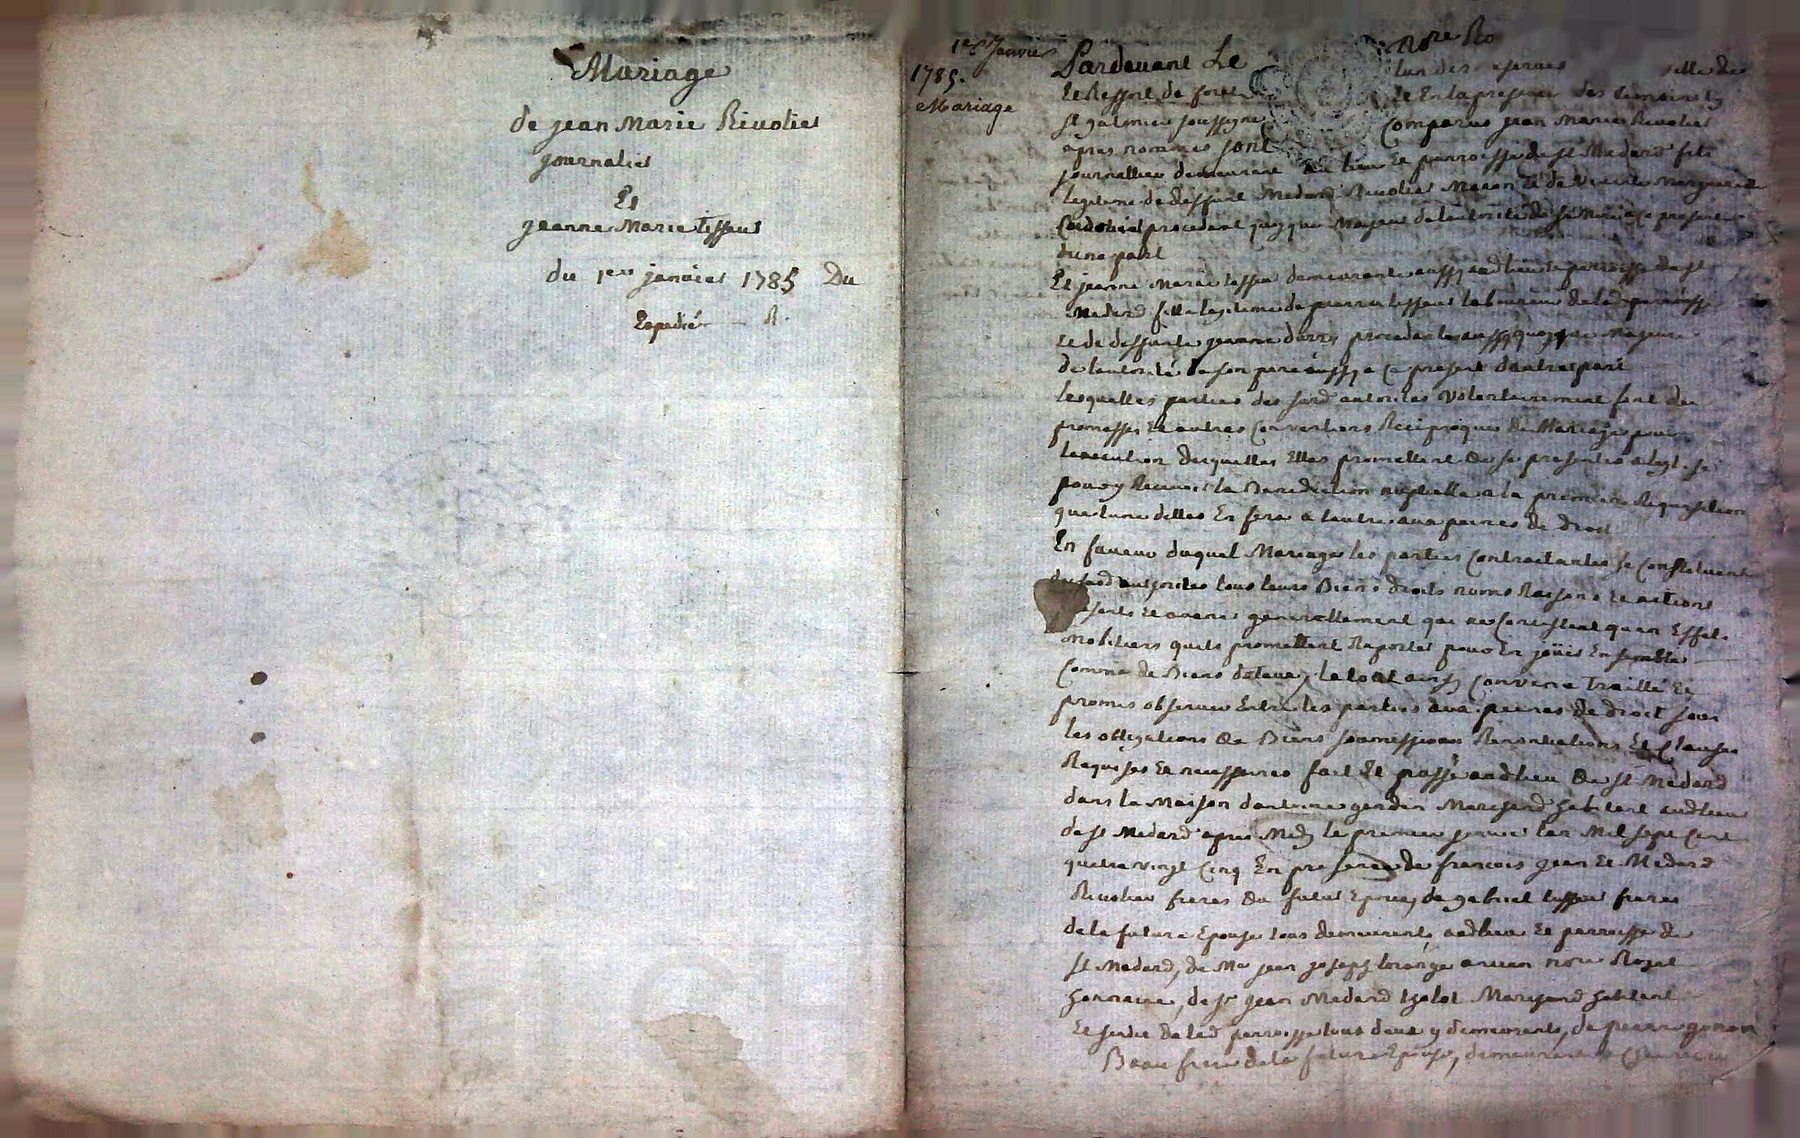 Mariage
de jean Marie Rivolier
journalier
Et
jeanne Marie tisseur
du 1er janvier 1785 Du
Expedié R.
1er Janvier
1785.
Mariage
Pardevant Le Nore Ro
Et Ressort de forest lun des reserves ville de
St galmier soussigné Et En la presence des temoins cy
apres nommés sont Comparus jean Marie Rivolier
journallier demeurant au lieu Et parroisse de St Medard fils
legitime de deffunt Medard Rivolier Macon Et de vivante Marguerite
procedant quoyque Majeur de lautorité de sa Mere a ce presente
dune part
Et jeanne Marie tisseur demeurante aussy audlieu Et parroisse de St
Medard fille legitime de pierre tisseur laboureur de lad parroisse
Et de deffunte jeanne procedante aussy quoyque Majeure
de lautorité de son pere aussy a ce present dautre part
lesquelles parties des susd autorités volontairement font les
promesses Et autres Conventions Reciproques de Mariage pour
lexecution desquelles Elles promettent de se presenter a legl. se
pour y Recevoir la Benediction nuptialle a la premiere Requisition
que lune delles En fera a lautre aux peines de droit
En faveur duquel Mariage les parties Contractantes se Constituent
desusd authorites tous leurs Biens droits noms Raisons Et actions
presents Et avenir generallement qui ne Consistent quen Effets
Mobiliers quils promettent Raporter pour En joüir Ensemble
Comme de Biens dotaux, le tout ainsy Convenu traitté Et
promis observer Entre les parties aux peines de droit sous
les obligations de Biens soumissions Renonciations Et Clauses
Requises Et necessaires fait Et passé audlieu de St Medard
dans la Maison dantoine Marchand habitant audlieu
de St Medard apres Midy le premier janvier lan Mil sept Cent
quatre vingt Cinq En presence de francois jean Et Medard
Rivolier freres du futur Epoux, de gabriel tisseur frere
de la future Epouse tous demeurants audlieu Et parroisse de
St Medard, de Me jean joseph ancien nore Royal
honoraire, de Sr jean Medard tholot Marchand habitant
Et sindic de lad parroisse tous deux y demeurants, de pierre
Beau frere de la future Epouse, demeurant a